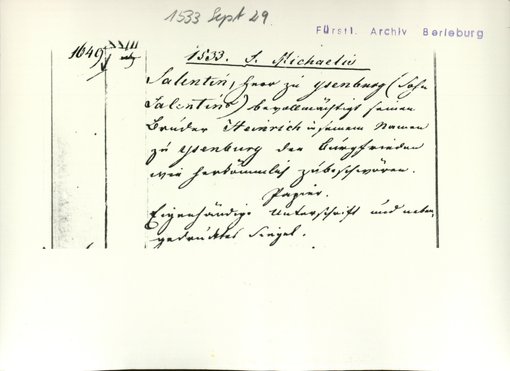 1533 Sept 29.
Fürstl. Archiv Berleburg
1649
1533. S. Michaelis
Salentin, Herr zu Ysenburg (Sohn
Salentins) bevollmächtigt seinen
Bruder Heinrich in seinem Namen
zu Ysenburg den Burgfrieden
wie herkömmlich zu beschwören.
Papier.
Eigenhändige Unterschrift und neben
gedrucktes Siegel.